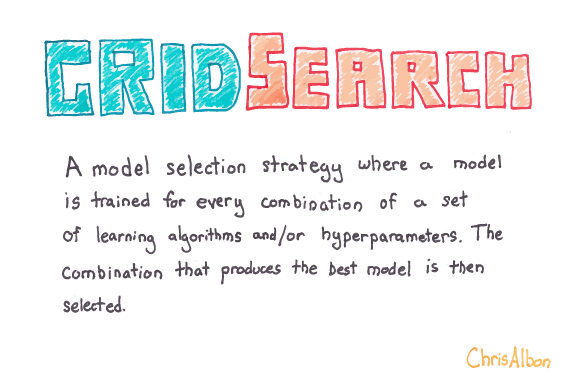 GRID SEARCH
A model selection strategy where a model
is trained for every combination of a set
of learning algorithms and/or hyperparameters. The
combination that produces the best model is then
selected.
ChrisAlbon